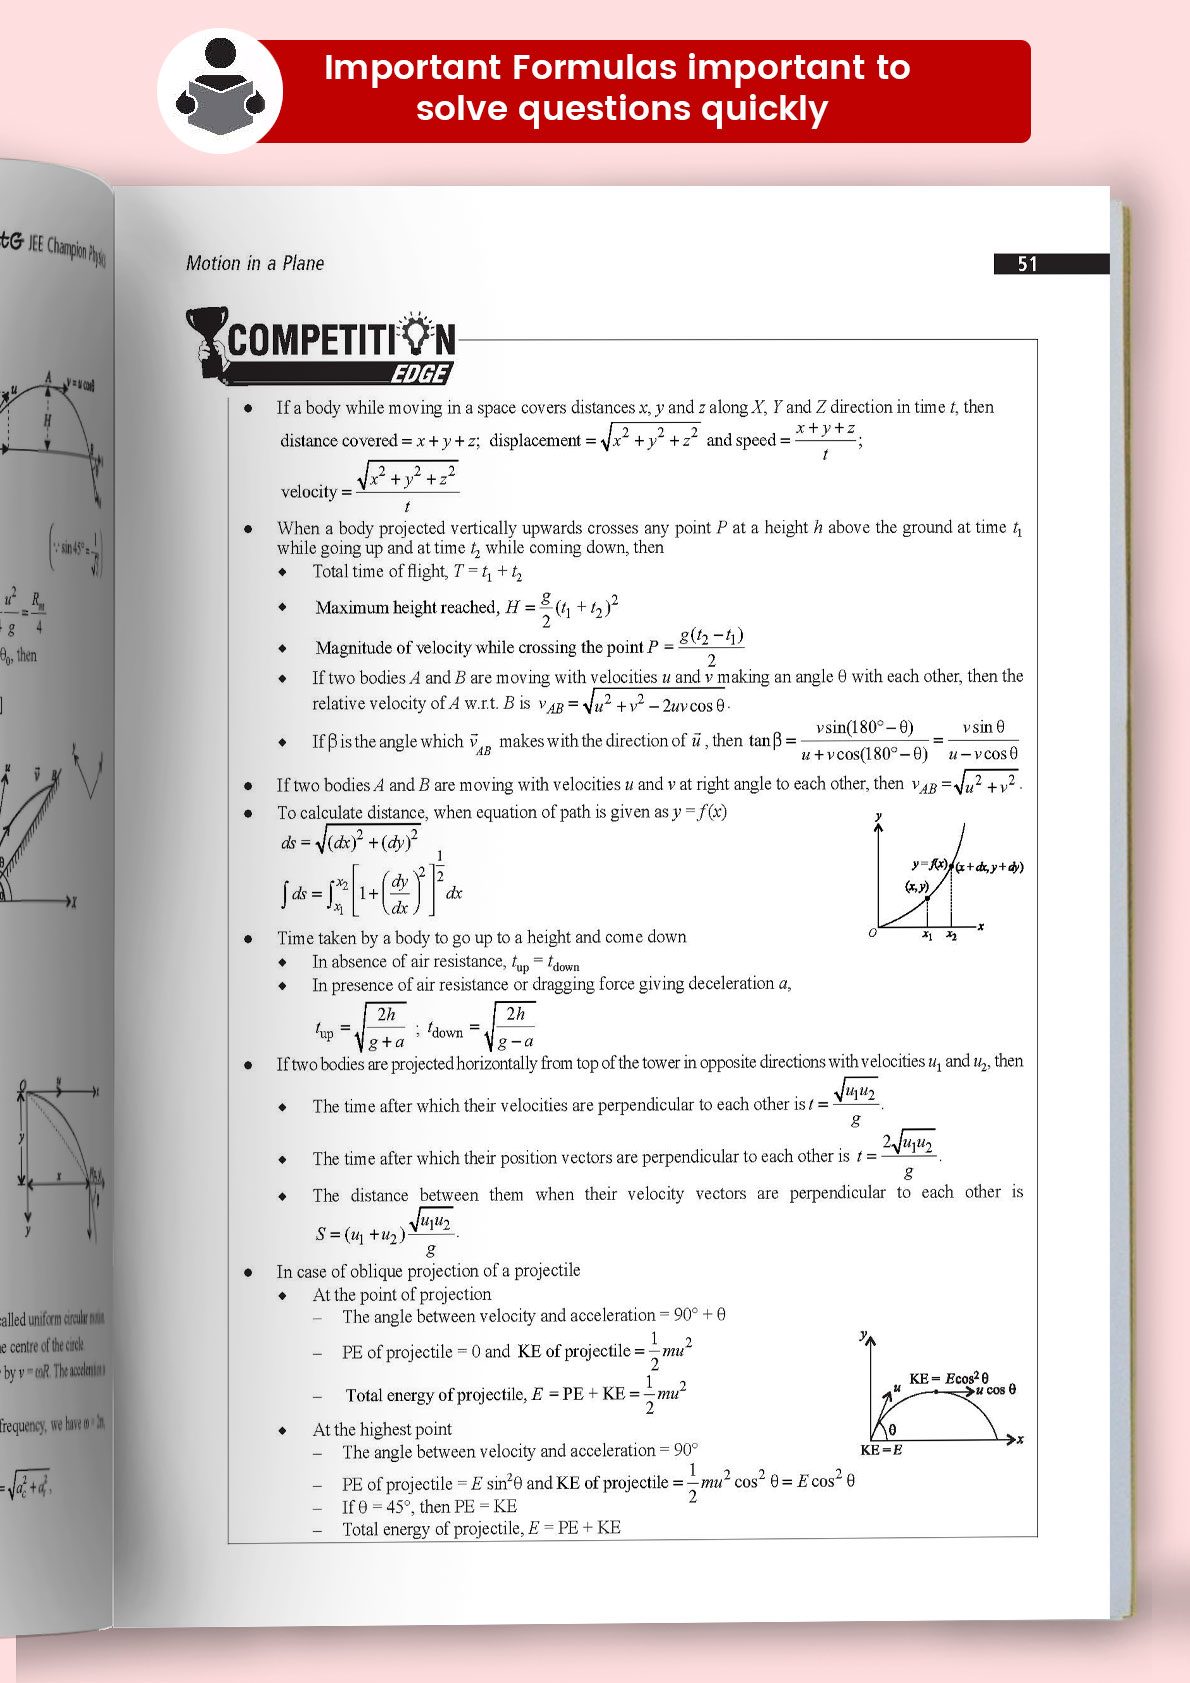 Important Formulas important to
solve questions quickly
JEE Champion Physics
Motion in a Plane
51
COMPETITION
EDGE
• If a body while moving in a space covers distances x, y and z along X, Y and Z direction in time t, then
distance covered = x + y + z; displacement = √(x² + y² + z²) and speed = (x + y + z)/t;
velocity = √(x² + y² + z²)/t
• When a body projected vertically upwards crosses any point P at a height h above the ground at time t₁
while going up and at time t₂ while coming down, then
◆ Total time of flight, T = t₁ + t₂
◆ Maximum height reached, H = g/2 (t₁ + t₂)²
◆ Magnitude of velocity while crossing the point P = g(t₂ − t₁)/2
◆ If two bodies A and B are moving with velocities u and v making an angle θ with each other, then the
relative velocity of A w.r.t. B is v_AB = √(u² + v² − 2uv cos θ).
◆ If β is the angle which v⃗_AB makes with the direction of u⃗, then tan β = v sin(180° − θ)/(u + v cos(180° − θ)) = v sin θ/(u − v cos θ)
• If two bodies A and B are moving with velocities u and v at right angle to each other, then v_AB = √(u² + v²).
• To calculate distance, when equation of path is given as y = f(x)
ds = √((dx)² + (dy)²)
∫ds = ∫_{x₁}^{x₂} [1 + (dy/dx)²]^{1/2} dx
y
y = f(x)
(x + dx, y + dy)
(x, y)
O
x₁
x₂
x
• Time taken by a body to go up to a height and come down
◆ In absence of air resistance, t_up = t_down
◆ In presence of air resistance or dragging force giving deceleration a,
t_up = √(2h/(g + a)) ; t_down = √(2h/(g − a))
• If two bodies are projected horizontally from top of the tower in opposite directions with velocities u₁ and u₂, then
◆ The time after which their velocities are perpendicular to each other is t = √(u₁u₂)/g.
◆ The time after which their position vectors are perpendicular to each other is t = 2√(u₁u₂)/g.
◆ The distance between them when their velocity vectors are perpendicular to each other is
S = (u₁ + u₂) √(u₁u₂)/g.
• In case of oblique projection of a projectile
◆ At the point of projection
– The angle between velocity and acceleration = 90° + θ
– PE of projectile = 0 and KE of projectile = 1/2 mu²
– Total energy of projectile, E = PE + KE = 1/2 mu²
◆ At the highest point
– The angle between velocity and acceleration = 90°
– PE of projectile = E sin²θ and KE of projectile = 1/2 mu² cos² θ = E cos² θ
– If θ = 45°, then PE = KE
– Total energy of projectile, E = PE + KE
y
KE = E cos² θ
u
u cos θ
θ
x
KE = E
A
u
v = u cosθ
H
(∵ sin 45° = 1/√2)
u²/g = Rm/4
θ₀, then
alled uniform circular motion
e centre of the circle
by v = ωR. The acceleration
frequency, we have ω = 2π
= √(a_c² + a_t²),